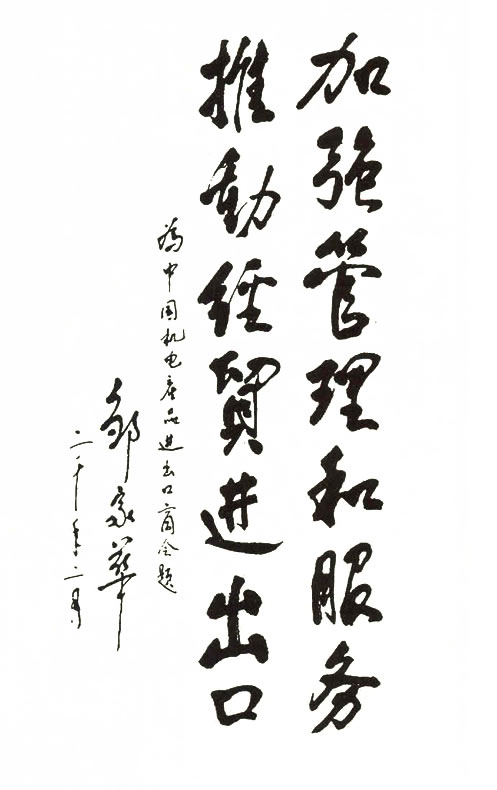 加强管理和服务
推動經貿进出口
為中国机电產品进出口商会题
邹家華
二〇〇〇年二月